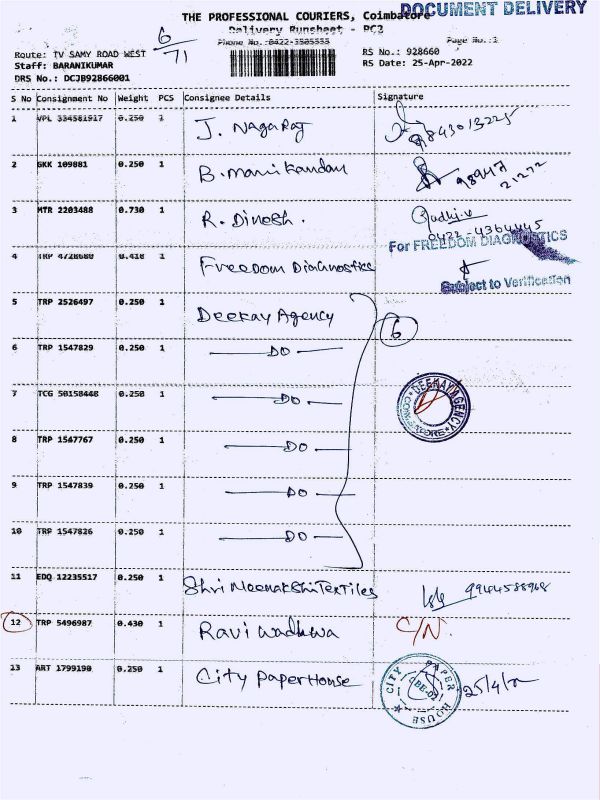 DOCUMENT DELIVERY
THE PROFESSIONAL COURIERS, Coimbatore
Delivery Runsheet - PC2
Phone No.:0422-3505555 Page No.:1
6
71
Route: TV SAMY ROAD WEST RS No.: 928660
Staff: BARANIKUMAR RS Date: 25-Apr-2022
DRS No.: DCJB92866001
S No Consignment No Weight PCS Consignee Details Signature
1 VPL 334581917 0.250 1 J. Nagaraj 9843013225
2 GKK 109881 0.250 1 B. manikandan 98947
21272
3 MTR 2203488 0.730 1 R. Dinesh.
0422-4364445
For FREEDOM DIAGNOSTICS
4 TRP 4728680 0.410 1 Freedom Diagnostics
Subject to Verification
5 TRP 2526497 0.250 1 Deekay Agency
6
6 TRP 1547829 0.250 1 DO
7 TCG 50158448 0.250 1 DO
DEEKAY AGENCY
COIMBATORE
8 TRP 1547767 0.250 1 DO
9 TRP 1547839 0.250 1 DO
10 TRP 1547826 0.250 1 DO
11 EDQ 12235517 0.250 1 Shri Meenakshi Textiles 9944588968
12 TRP 5496987 0.430 1 Ravi wadhwa C/N.
13 ART 1799190 0.250 1 City PaperHouse 25/4/22
CITY PAPER HOUSE
CBE-02